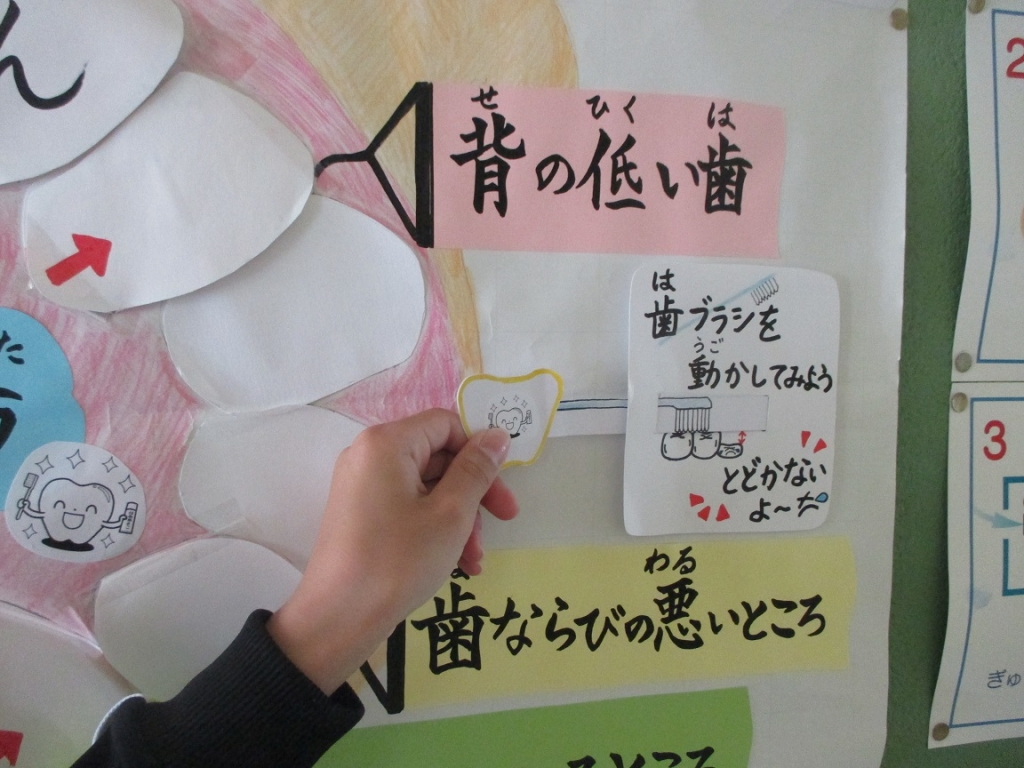 ん
せ ひく は
背の低い歯
は
歯ブラシを
うご
動かしてみよう
とどかない
よ〜だ
わる
歯ならびの悪いところ
ところ
た
2
3
ぎゅ